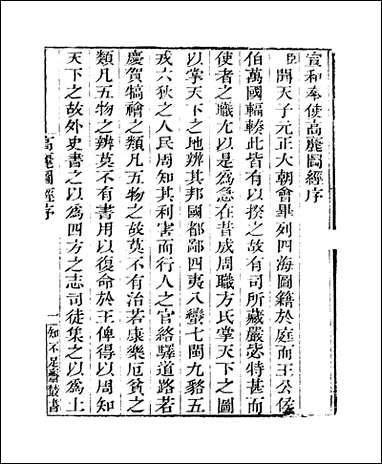 宣和奉使高麗圖經序
臣聞天子元正大朝會畢列四海圖籍於庭而王公侯
伯萬國輻輳此皆有以揆之故有司所藏嚴毖特甚而
使者之職尤以是為急在昔成周職方氏掌天下之圖
以掌天下之地辨其邦國都鄙四夷八蠻七閩九貉五
戎六狄之人民周知其利害而行人之官絡驛道路若
慶賀犒禬之類凡五物之故莫不有治若康樂厄貧之
類凡五物之辨莫不有書用以復命於王俾得以周知
天下之故外史書之以為四方之志司徒集之以為土
高麗圖經序
一
知不足齋叢書